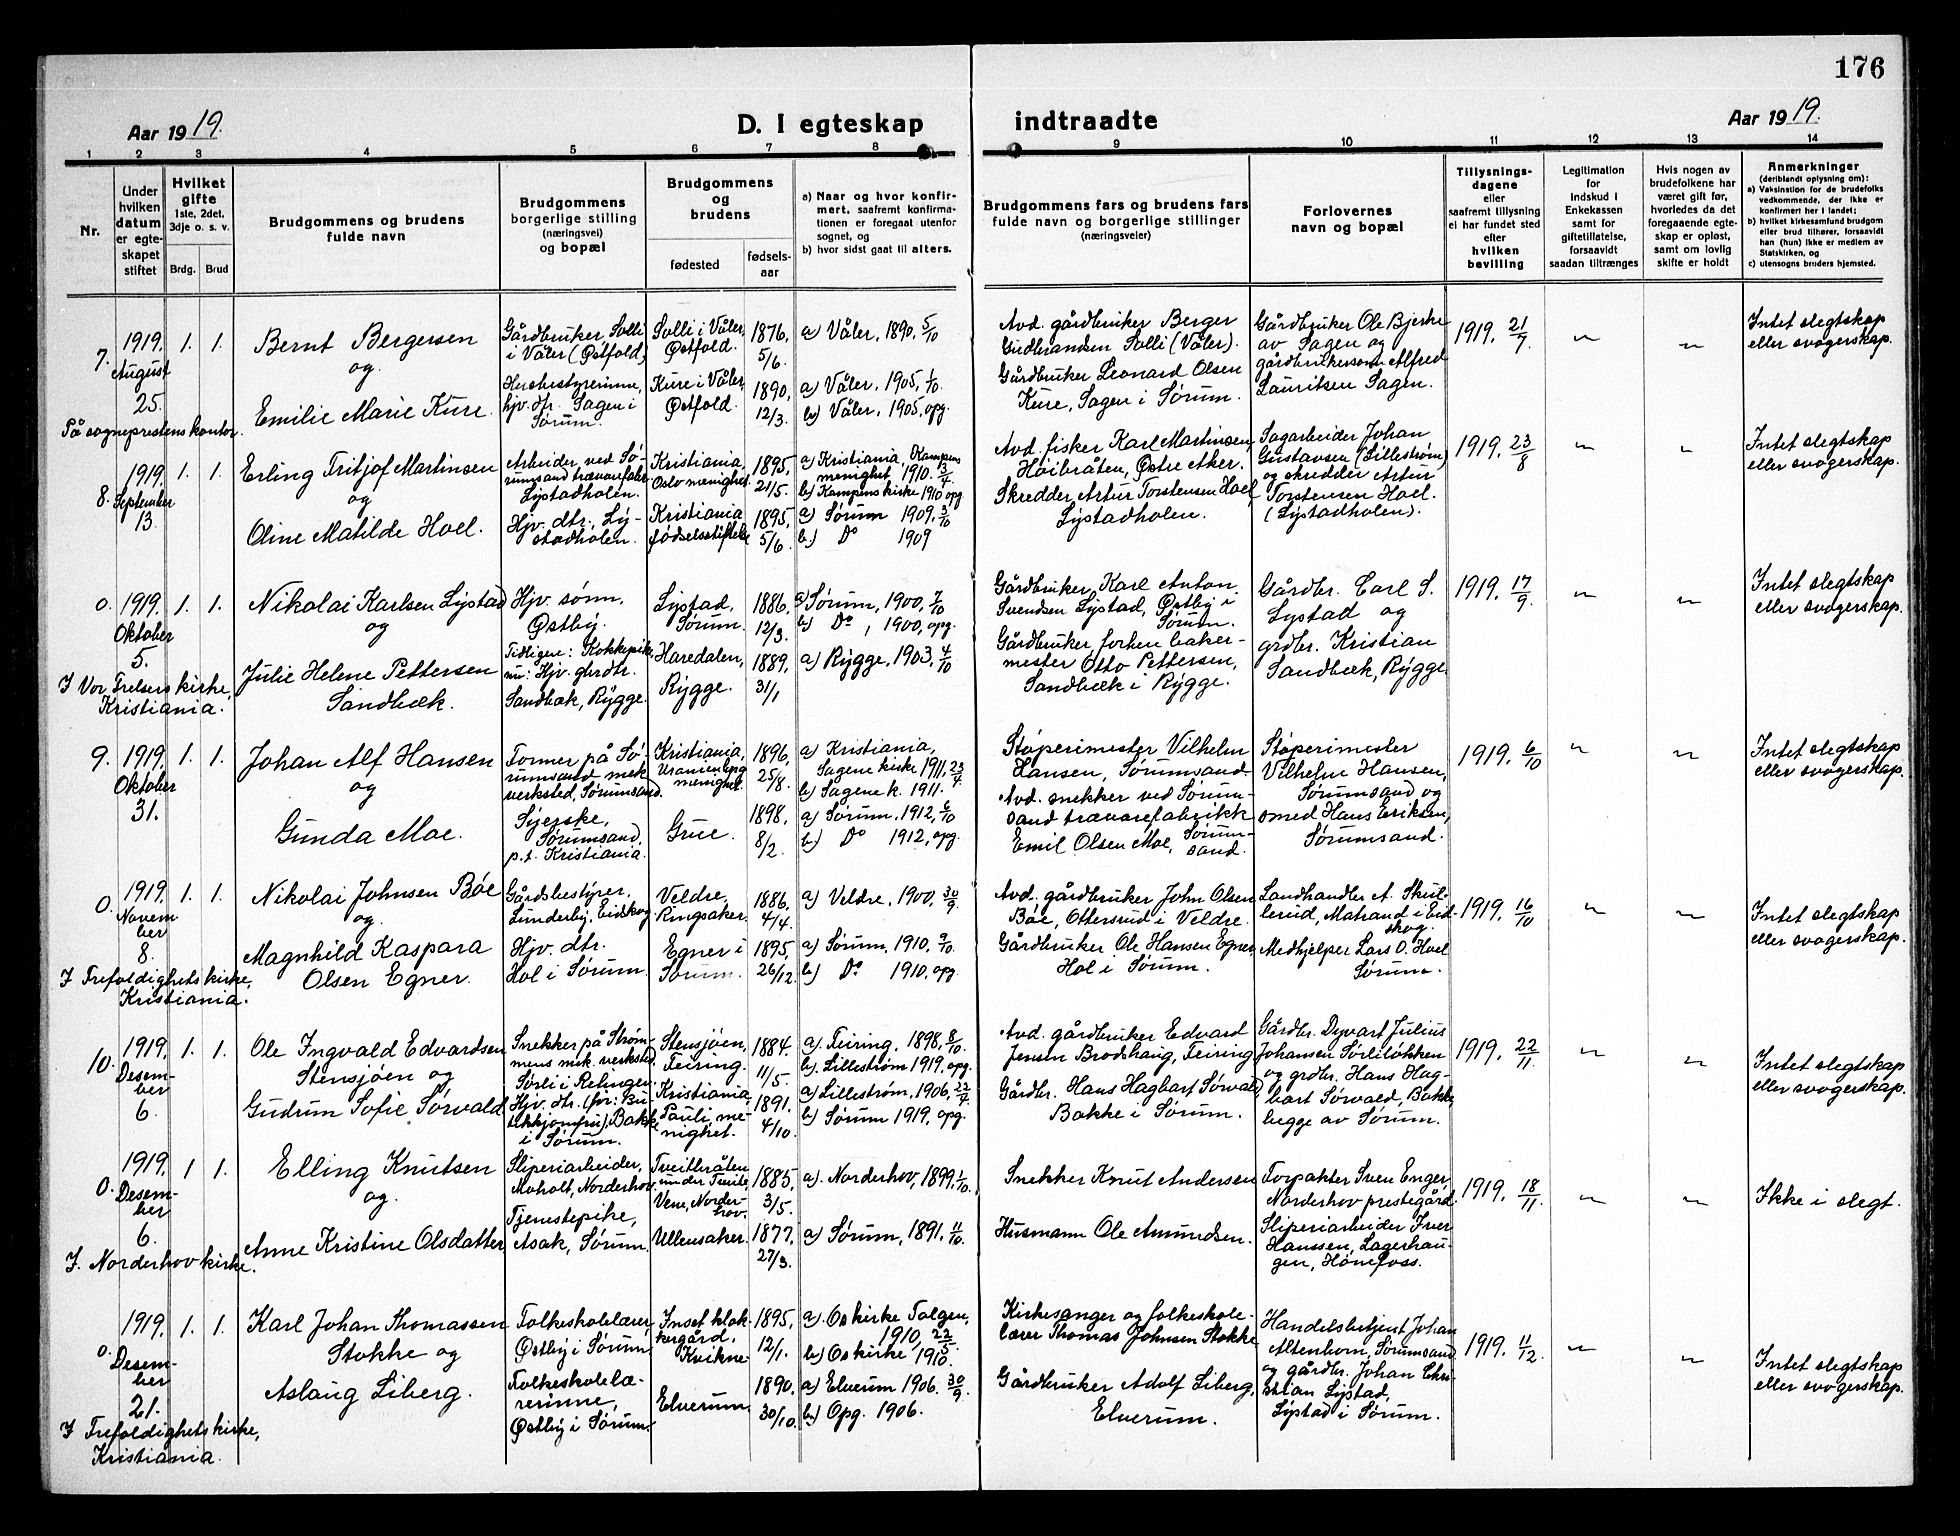 176
Aar 1919.
D. I egteskap indtraadte
Aar 1919.
1 2 3 4 5 6 7 8 9 10 11 12 13 14
Nr.
Under hvilken datum er egteskapet stiftet
Hvilket gifte 1ste, 2det, 3dje o. s. v.
Brdg. Brud
Brudgommens og brudens fulde navn
Brudgommens og brudens borgerlige stilling (næringsvei) og bopæl
Brudgommens og brudens
fødested
fødselsaar
a) Naar og hvor konfirmert, saafremt konfirmationen er foregaat utenfor sognet, og
b) hvor sidst gaat til alters.
Brudgommens fars og brudens fars fulde navn og borgerlige stillinger (næringsveier)
Forlovernes navn og bopæl
Tillysningsdagene eller saafremt tillysning ei har fundet sted efter hvilken bevilling
Legitimation for indskud i Enkekassen samt for giftetillatelse, forsaavidt saadan tiltrænges
Hvis nogen av brudefolkene har været gift før, hvorledes da det foregaaende egteskap er opløst, samt om lovlig skifte er holdt
Anmerkninger (deriblandt oplysning om):
a) Vaksination for de brudefolks vedkommende, der ikke er konfirmert her i landet;
b) hvilket kirkesamfund brudgom eller brud tilhører, forsaavidt han (hun) ikke er medlem av Statskirken, og
c) utensogns bruders hjemsted.
7.
1919.
August
25.
På sogneprestens kontor.
1. 1.
Bernt Bergersen
og
Emilie Marie Kure.
Gårdbruker, Solli
i Våler (Østfold)
Husbestyrerinne,
hjv. dtr. Sagen i
Sørum.
Solli i Våler,
Østfold.
Kure i Våler,
Østfold.
1876,
5/6.
1890,
12/3.
a) Våler, 1890, 5/10
a) Våler, 1905, 1/10.
b) Våler, 1905, opg.
Avd. gårdbruker Berger
Gudbrandsen Solli (Våler).
Gårdbruker Leonard Olsen
Kure, Sagen i Sørum.
Gårdbruker Ole Bjerke
av Sagen og
gårdbrukersønn Alfred
Lauritsen Sagen.
1919, 21/7
"
"
Intet slegtskap
eller svogerskap.
8.
1919.
September
13.
1. 1.
Erling Fritjof Martinsen
og
Oline Matilde Hoel.
Arbeider ved Sørumsand
trævarefabr.
Lystadholen.
Hjv. dtr., Lystadholen.
Kristiania,
Oslo menighet.
Kristiania
fødselsstiftelse
1895,
21/5.
1895,
5/6.
a) Kristiania, Kampens
menighet, 1910. 13/4
b) Kampens kirke 1910 opg
a) Sørum 1909, 3/10
b) Do 1909
Avd. fisker Karl Martinsen,
Høibråten, Østre Aker.
Skredder Artur Torstensen Hoel,
Lystadholen.
Sagarbeider Johan
Gustavsen (Lillestrøm)
og skredder Artur
Torstensen Hoel.
(Lystadholen).
1919, 23/8
"
"
Intet slegtskap
eller svogerskap.
0.
1919.
Oktober
5.
I Vor Frelsers kirke,
Kristiania.
1. 1.
Nikolai Karlsen Lystad
og
Julie Helene Pettersen
Sandbæk.
Hjv. sønn.
Østby.
Tidligere: Kokkepike
nu: Hjv. gbrdtr.
Sandbæk, Rygge.
Lystad,
Sørum.
Haredalen,
Rygge.
1886,
12/3.
1889,
31/1
a) Sørum, 1900, 7/10
b) Do, 1900, opg.
a) Rygge, 1903, 4/10
Gårdbruker, Karl Anton
Svendsen Lystad, Østby i
Sørum.
Gårdbruker, forhen bakermester
Otto Pettersen,
Sandbæk i Rygge.
Gårdbr. Carl S.
Lystad og
grdbr. Kristian
Sandbæk, Rygge.
1919, 17/9
"
"
Intet slegtskap
eller svogerskap.
9.
1919.
Oktober
31.
1. 1.
Johan Alf Hansen
og
Gunda Moe.
Former på Sørumsand
mek.
verksted, Sørumsand.
Syerske,
Sørumsand,
p.t. Kristiania.
Kristiania,
Uranienborg
menighet.
Grue.
1896,
25/8.
1898,
8/2.
a) Kristiania,
Sagene kirke 1911, 23/4
b) Sagene k. 1911.
a) Sørum, 1912, 6/10
b) Do 1912, opg.
Støperimester Vilhelm
Hansen, Sørumsand.
Avd. snekker ved Sørumsand
trævarefabrikk
Emil Olsen Moe, Sørumsand.
Støperimester
Vilhelm Hansen,
Sørumsand og
smed Hans Eriksen,
Sørumsand.
1919, 6/10
"
"
Intet slegtskap
eller svogerskap.
0.
1919.
November
8.
I Trefoldighets kirke,
Kristiania.
1. 1.
Nikolai Johnsen Bøe
og
Magnhild Kaspara
Olsen Egner.
Gårdsbestyrer,
Lunderby, Eidskog.
Hjv. dtr.
Hol i Sørum.
Veldre,
Ringsaker.
Egner i
Sørum.
1886,
4/4.
1895,
26/12.
a) Veldre, 1900, 30/9
a) Sørum, 1910, 9/10
b) Do 1910, opg
Avd. gårdbruker John Olsen
Bøe, Ottersrud i Veldre.
Gårdbruker Ole Hansen Egner,
Hol i Sørum.
Landhandler A. Skullerud,
Matrand i Eidskog.
Medhjelper Lars O. Hoel
Sørum.
1919, 16/10
"
"
Intet slegtskap
eller svogerskap.
10.
1919.
Desember
6.
1. 1.
Ole Ingvald Edvardsen
Stensjøen og
Gudrun Sofie Sørvald
Snekker på Strømmens
mek. verksted,
Sørli i Relingen.
Hjv. dtr. (før: Butikkjomfru),
Bakke
i Sørum.
Stensjøen,
Feiring.
Kristiania,
Pauli menighet.
1884.
11/5.
1891.
4/10.
a). Feiring, 1898, 8/10.
b). Lillestrøm 1919. opg
a) Lillestrøm, 1906, 22/4
b) Sørum 1919, opg.
Avd. gårdbruker Edvard
Jensen Brodshaug, Feiring
Gårdbr. Hans Hagbart Sørvald
Bakke i Sørum.
Gårdbr. Dyvart Julius
Johansen Sørliløkken
og grdbr. Hans Hagbart
Sørvald, Bakke,
begge av Sørum.
1919, 22/11
"
"
Intet slegtskap
eller svogerskap.
0.
1919.
Desember
6.
I. Norderhov kirke.
1 1.
Elling Knutsen
og.
Anne Kristine Olsdatter
Sliperiarbeider,
Moholt, Norderhov.
Tjenestepike,
Asak, Sørum.
Tveitbråten
under Tveite,
Veme, Norderhov.
Ullensaker.
1885,
3/5.
1877,
27/3.
a). Norderhov, 1899, 1/10.
a) Sørum, 1891, 11/10.
Snekker Knut Andersen
Husmann Ole Amundsen.
Forpakter Sven Enger,
Norderhov prestegård.
Sliperiarbeider Iver
Hanssen, Lagerhaugen,
Hønefoss.
1919, 18/11
"
"
Ikke i slegt.
0.
1919.
Desember
21.
I Trefoldighets kirke,
Kristiania.
1. 1.
Karl Johan Thomassen
Stokke og
Aslaug Liberg.
Folkeskolelærer,
Østby i Sørum
Folkeskolelærerinne,
Østby i Sørum.
Inset klokkergård,
Kvikne
Elverum
1895,
12/1.
1890,
30/10.
a) Os kirke Tolgen,
1910, 22/5
b) Os kirke 1910.
a) Elverum 1906. 30/9
b) Opg. 1906.
Kirkesanger og folkeskolelærer
Thomas Johnsen Stokke
Gårdbruker Adolf Liberg,
Elverum.
Handelsbetjent Johan
Altenborn, Sørumsand
og gårdbr. Johan Christian
Lystad,
Lystad i Sørum.
1919. 11/12.
"
"
Intet slegtskap
eller svogerskap.